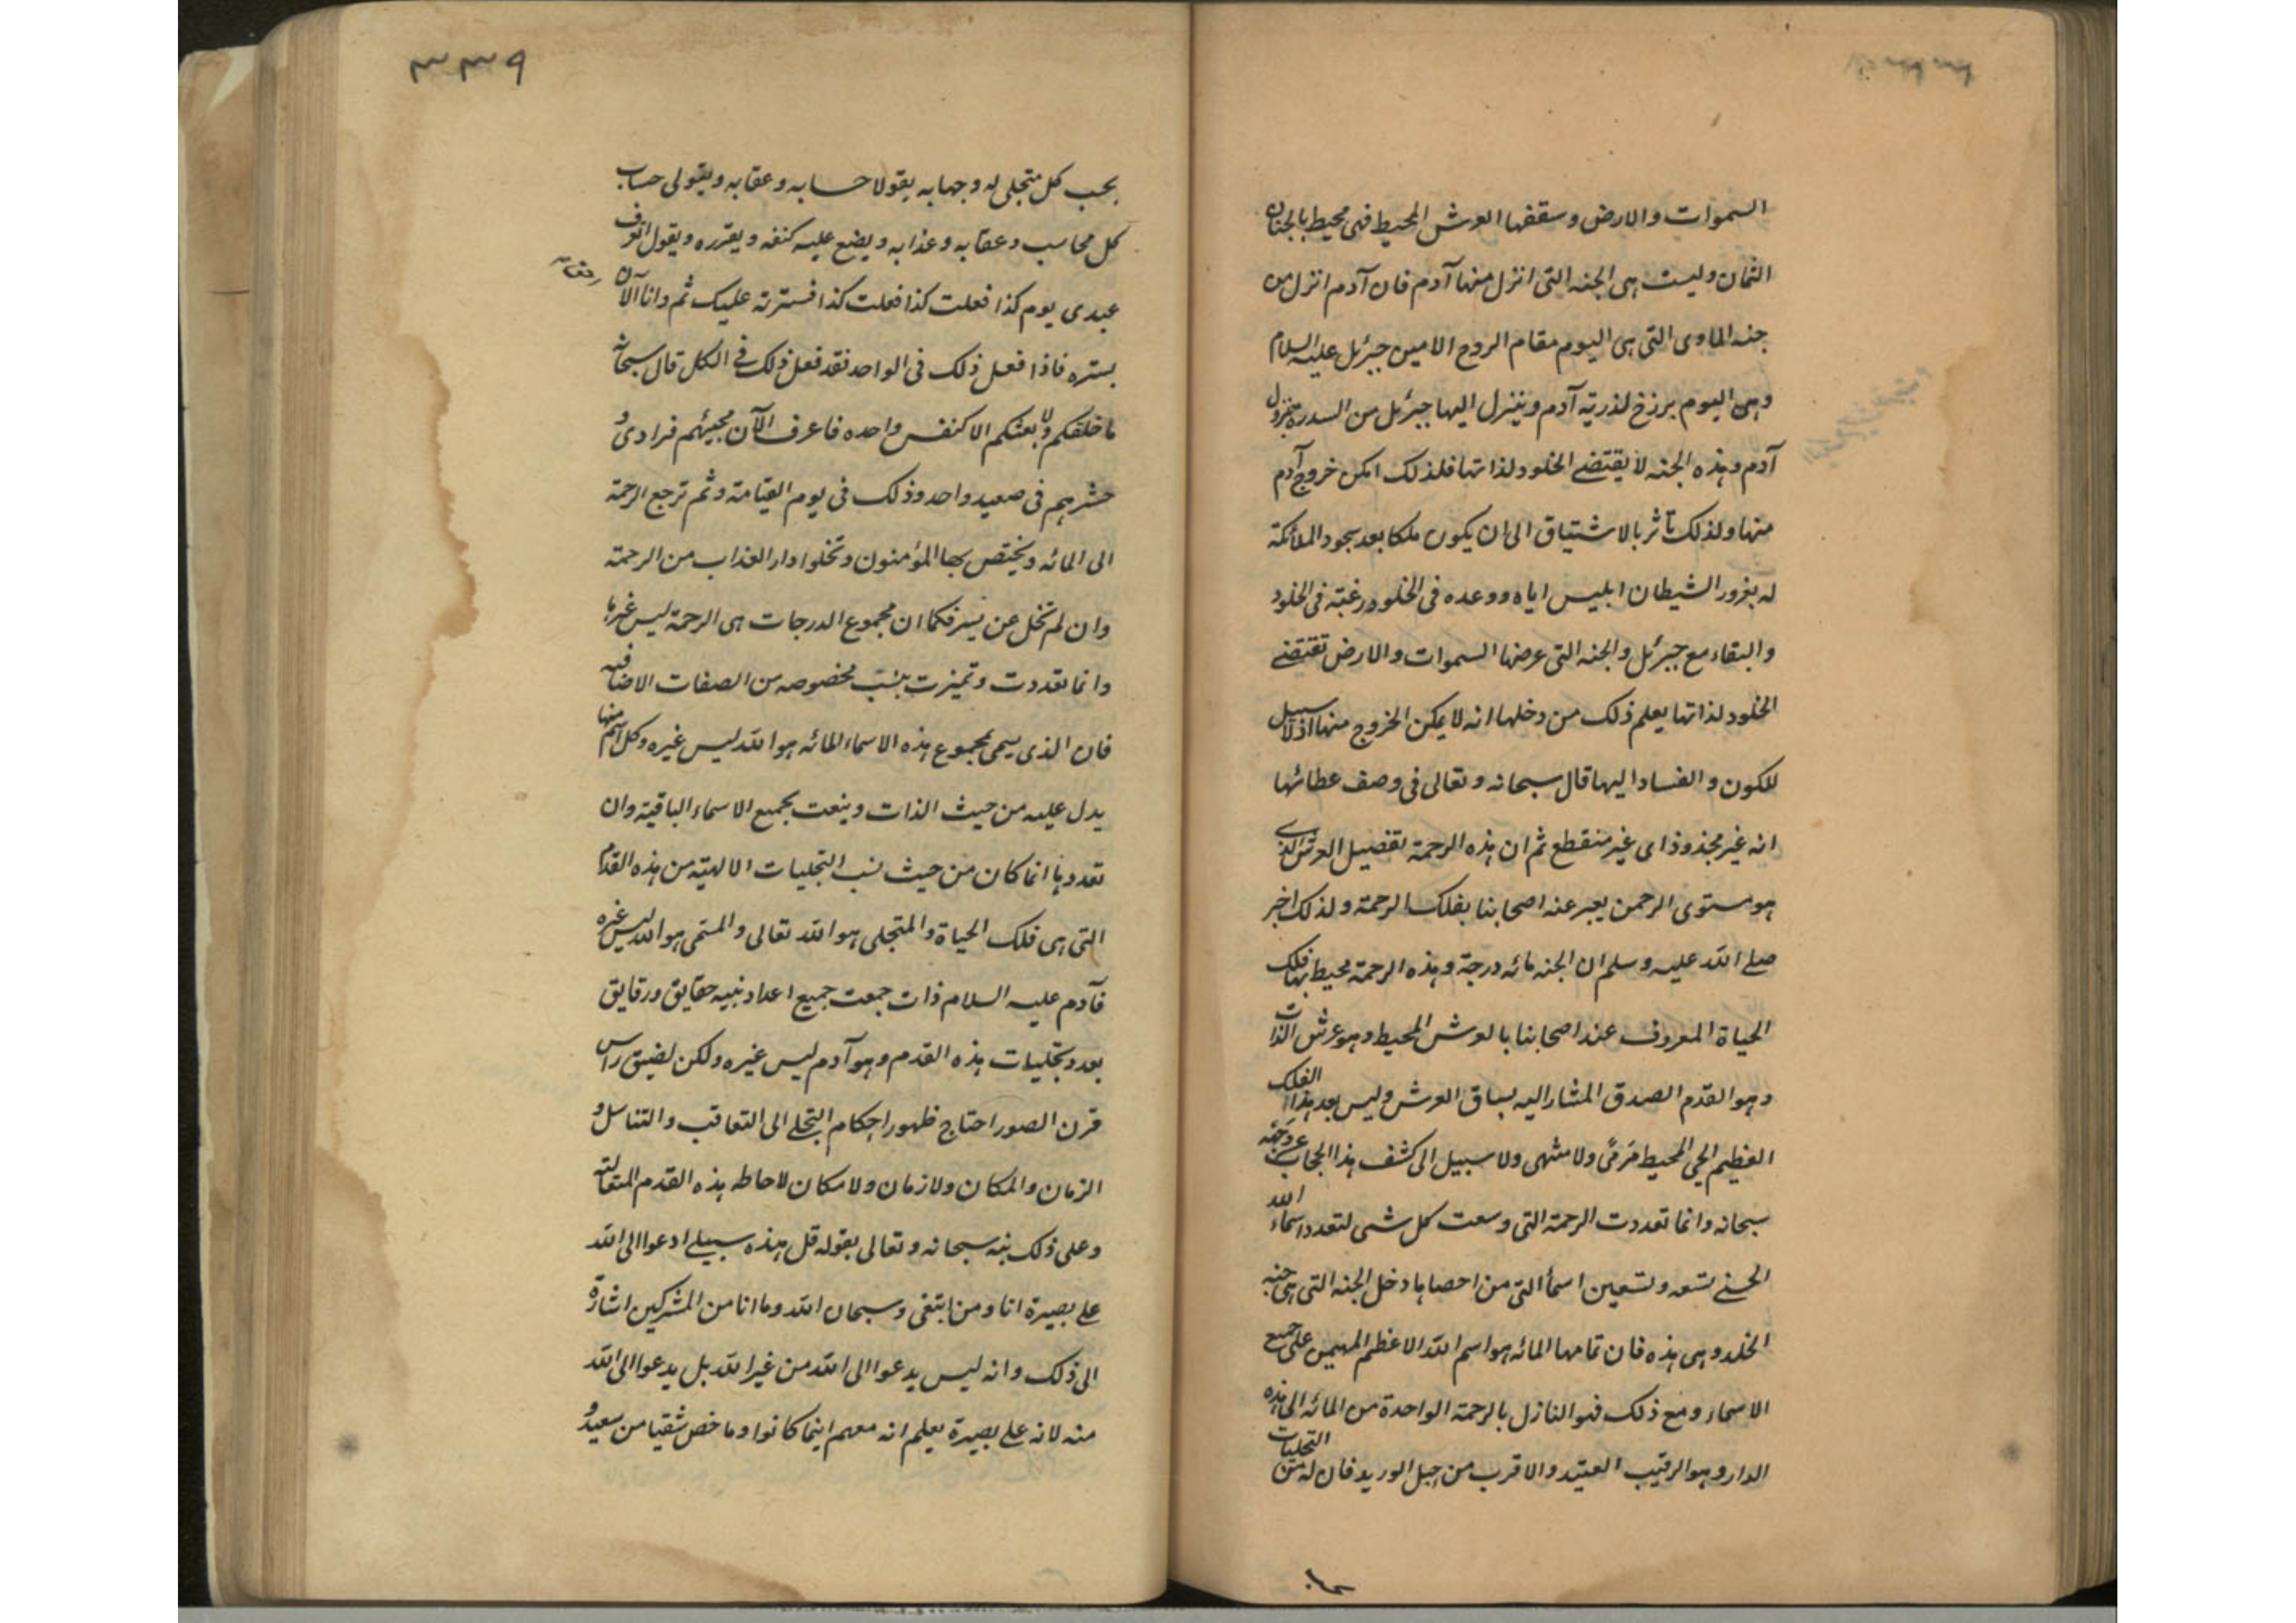 السموات والارض وسقفها العرش المحيط فهى محيط بالجنان
الثمان وليست هى الجنه التى انزل منها آدم فان آدم انزل من
جنه الماوى التى هى اليوم مقام الروح الامين جبرئل عليه السلام
وهى اليوم برزخ لذرية آدم وينزل اليها جبرئل من السدرة بنزول
آدم وهذه الجنه لا يقتضے الخلود لذاتها فلذلك امكن خروج آدم
منها ولذلك تأثر بالاشتياق الى ان يكون ملكا بعد سجود الملائكة
له بغرور الشيطان ابليس اياه ووعده فى الخلود رغبته فى الخلود
والبقاء مع جبرئل والجنه التى عرضها السموات والارض تقتضے
الخلود لذاتها يعلم ذلك من دخلها انه لا يمكن الخروج منها اذ لا سبيل
للكون والفساد اليها قال سبحانه وتعالى فى وصف عطائها
انه غير مجذوذ اى غير منقطع ثم ان هذه الرحمة تفصيل العرش الذى
هو مستوى الرحمن يعبر عنه اصحابنا بفلك الرحمة ولذلك اخبر
صلے الله عليه وسلم ان الجنه مائه درجة وهذه الرحمة محيط بها فلك
الحياة المعروف عند اصحابنا بالعرش المحيط وهو عرش الذات
وهو القدم الصدق المشار اليه بساق العرش وليس بعد هذا الفلك
العظيم الحى المحيط مَرمىً ولا منتهى ولا سبيل الى كشف هذا الحجاب عن وجهه
سبحانه وانما تعددت الرحمة التى وسعت كل شى لتعدد اسماء الله
الحسنے تسعه وتسعين اسماً التى من احصاها دخل الجنه التى هى جنه
الخلد وهى هذه فان تمامها المائه هو اسم الله الاعظم المهيمن على جميع
الاسماء ومع ذلك فهو النازل بالرحمة الواحدة من المائه الى هذه
الدار وهو الرقيب العتيد والاقرب من حبل الوريد فان له من التجليات
٣٣٩
بحسب كل متجلى له وجها به يقولا حسابه وعقابه ويتولى حساب
كل محاسب وعقابه وعذابه ويضع عليه كنفه ويقرره ويقول اتعرف
عبدى يوم كذا فعلت كذا فعلت كذا فسترته عليك ثم وانا الآن
بستره فاذا فعل ذلك فى الواحد فقد فعل ذلك فى الكل قال سبحانه
ما خلقكم ولا بعثكم الا كنفس واحده فاعرف الآن مجيئهم فرادى و
حشرهم فى صعيد واحد وذلك فى يوم القيامة وثم ترجع الرحمة
الى المائه ويختص بها المؤمنون وتخلوا دار العذاب من الرحمة
وان لم تخل عن يسر فكما ان مجموع الدرجات هى الرحمة ليس غيرها
وانما تعددت وتميزت بنسب مخصوصه من الصفات الاضافيه
فان الذى يسمى بمجموع هذه الاسماء المائه هو الله ليس غيره وكل اسم منها
يدل عليه من حيث الذات وينعت بجميع الاسماء الباقية وان
تعددها انما كان من حيث نسب التجليات الالهية من هذه القدم
التى هى فلك الحياة والمتجلى هو الله تعالى والمسمى هو الله ليس غيره
فآدم عليه السلام ذات جمعت جميع اعداد بنيه حقايق ورقايق
بعدد تجليات هذه القدم وهو آدم ليس غيره ولكن لضيق راس
قرن الصور احتاج ظهور احكام التجلے الى التعاقب والتناسل و
الزمان والمكان ولا زمان ولا مكان لاحاطه هذه القدم المتعاليه
وعلى ذلك نبه سبحانه وتعالى بقوله قل هذه سبيلے ادعوا الى الله
علے بصيرة انا ومن اتبعنى وسبحان الله وما انا من المشركين اشارة
الى ذلك وانه ليس يدعوا الى الله من غير الله بل يدعوا الى الله
منه لانه علے بصيرة يعلم انه معهم اينما كانوا وما خص شقيا من سعيد و